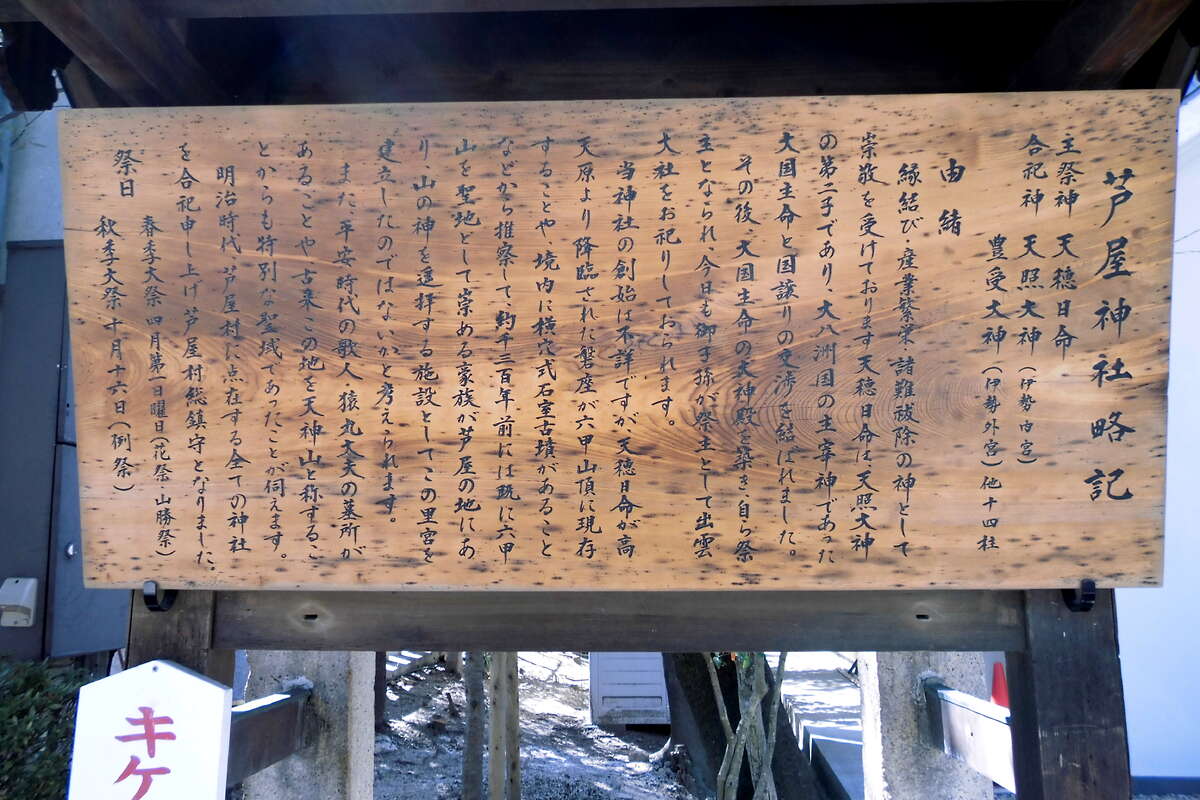 芦屋神社略記
主祭神 天穂日命
合祀神 天照大神(伊勢内宮)
豊受大神(伊勢外宮)他十四柱
由緒
縁結び・産業繁栄・諸難祓除の神として
崇敬を受けております天穂日命は、天照大神
の第二子であり、大八洲国の主宰神であった
大国主命と国譲りの交渉を結ばれました。
その後、大国主命の大神殿を築き、自ら祭
主となられ、今日も御子孫が祭主として出雲
大社をお祀りしておられます。
当神社の創始は不詳ですが、天穂日命が高
天原より降臨された磐座が六甲山頂に現存
することや、境内に横穴式石室古墳があること
などから推察して、約千三百年前には既に六甲
山を聖地として崇める豪族が芦屋の地にあ
り、山の神を遥拝する施設としてこの里宮を
建立したのではないかと考えられます。
また、平安時代の歌人・猿丸太夫の墓所が
あることや古来この地を天神山と称するこ
とからも特別な聖域であったことが伺えます。
明治時代、芦屋村に点在する全ての神社
を合祀申し上げ芦屋村総鎮守となりました。
祭日 春季大祭 四月第一日曜日(花祭 山勝祭)
秋季大祭 十月十六日(例祭)
キケ